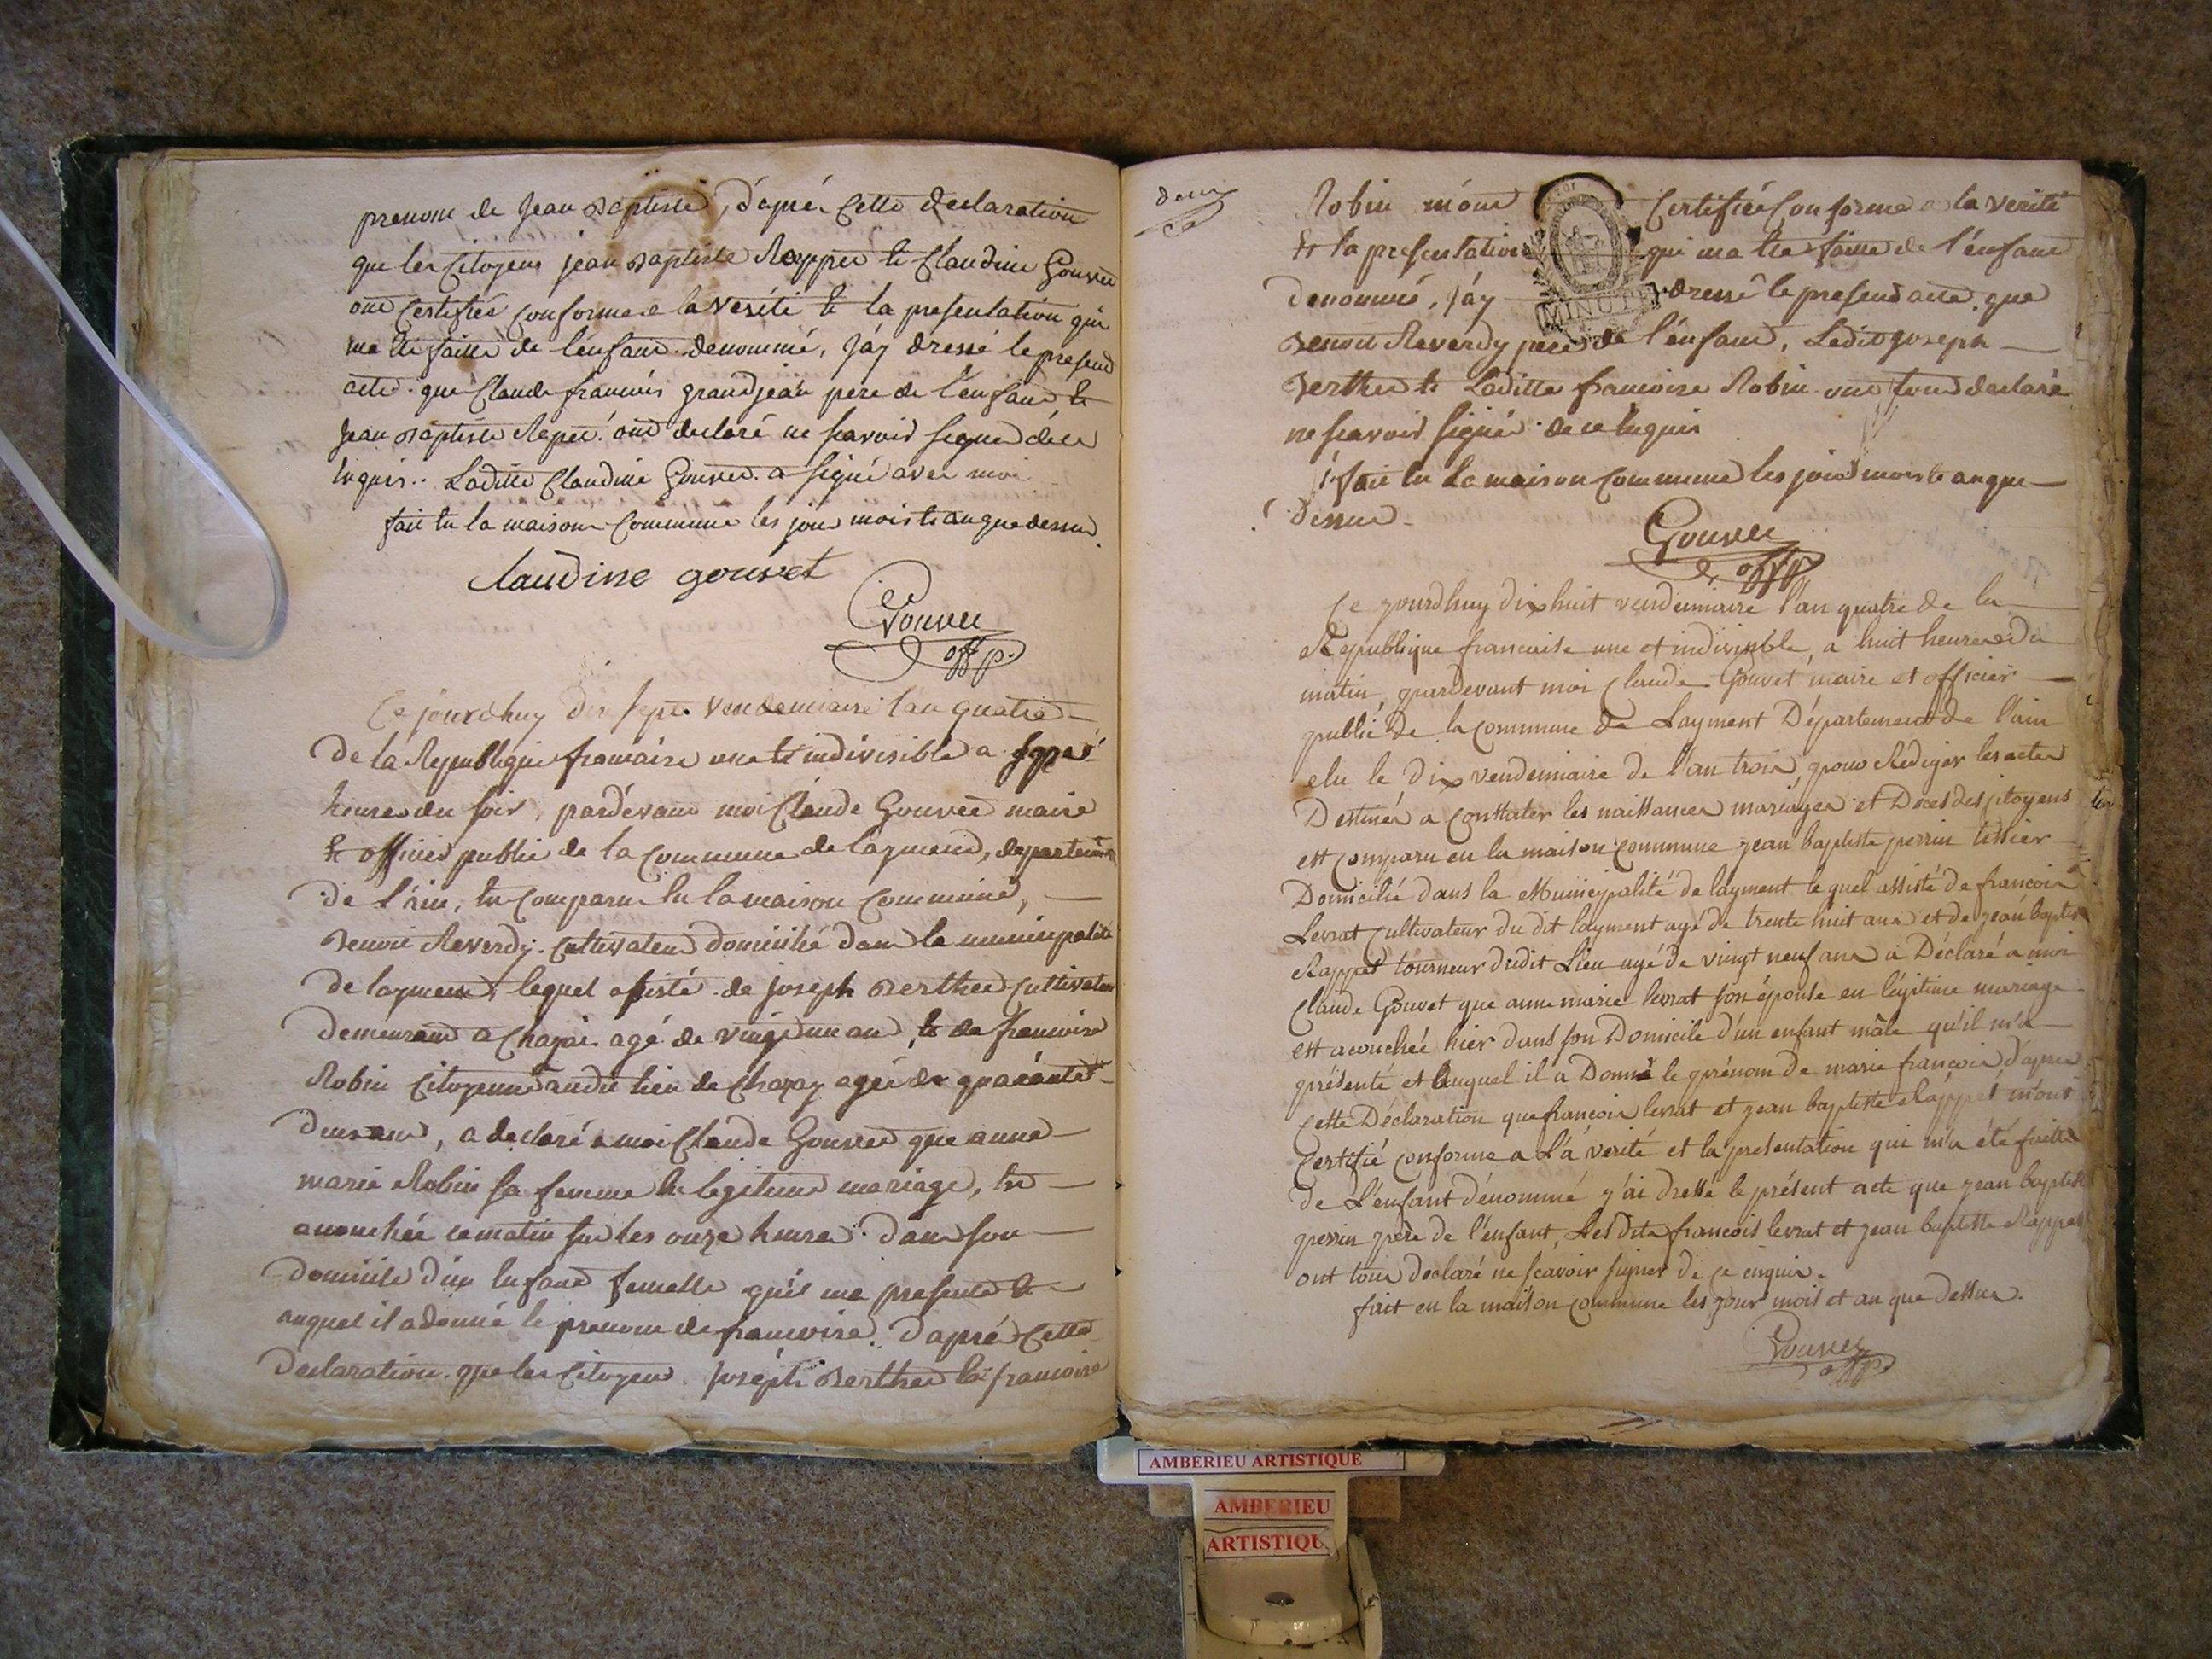 prenom de Jean Baptiste, d'aprés Cette declaration
que les Citoyens jean Baptiste Rappet et Claudine Gouvet
ont Certifiés conforme a la verité et la presentation qui
ma été faitte de l'enfant denommé, J'áy dressé le present
acte que Claude francois grandjean pere de l'enfant et
Jean Baptiste Repet ont declaré ne scavoir signer de ce
enquis. Laditte Claudine Gouvet a signé avec moi
fait en la maison Commune les jour mois et an que dessus.
Claudine gouvet
Gouvet
off p.
Ce jourdhuy dix sept Vendemiaire l'an quatre
de la Republique francaise une et indivisible a sept
heures du soir, pardévant moi Claude Gouvet maire
et officier public de la Commune de layment, departement
de l'ain, est comparu en la maison Commune,
Benoit Reverdy Cultivateur domicilié dans la municipalité
de layment, lequel assisté de joseph Berthet Cultivateur
demeurant a Chazai agé de vingt un an, et de francoise
Robin Citoyenne audit lieu de Chazay agée de quarante
deux ans, a declaré a moi Claude Gouvet que anne
marie Robin sa femme en legitime mariage, est
acouchée ce matin sur les onze heures dans son
domicile d'un enfant femelle qu'il ma presenté et
auquel il a donné le prenom de francoise. d'aprés Cette
declaration que les Citoyens Joséph Berthet et francoise
deux
Robin m'ont Certifié Conforme a la verité
Et la presentation qui ma été faitte de l'enfant
denommé, J'áy dressé le present acte que
MINUTE
Benoit Reverdy pere de l'enfant, Ledit joseph
Berthet et Laditte francoise Robin ont tous declaré
ne scavoir signer de ce enquis
fait en la maison Commune les jour mois et an que
dessus
Gouvet
off p
Ce jourdhuy dix huit vendemiaire l'an quatre de la
Republique francaise une et indivisible, a huit heures du
matin, pardevant moi Claude Gouvet maire et officier
public de la commune de Layment Département de l'ain
elu le dix vendemiaire de l'an trois, pour Rediger les actes
Destinés a Constater les naissances mariages et Decès des Citoyens
est comparu en la maison commune jean baptiste perrin tissier
Domicilié dans la Municipalité de layment lequel assisté de francois
Levrat Cultivateur du dit layment agé de trente huit ans et de jean baptiste
Rappet tourneur dudit Lieu agé de vingt neuf ans a Déclaré a moi
Claude Gouvet que anne marie levrat son épouse en légitime mariage
est acouchée hier dans son Domicile d'un enfant mâle qu'il m'a
présenté et auquel il a Donné le prénom de marie francois, d'aprés
Cette Déclaration que francois levrat et jean baptiste Rappet m'ont
Certifié conforme a La verité et la presentation qui m'a été faitte
de L'enfant dénommé j'ai dressé le présent acte que jean baptiste
perrin père de l'enfant, Les dits francois levrat et jean baptiste Rappet
ont tous declaré ne scavoir signer de ce enquis.
fait en la maison commune les jour mois et an que dessus.
Gouvet
off p.
AMBERIEU ARTISTIQUE
AMBERIEU
ARTISTIQU